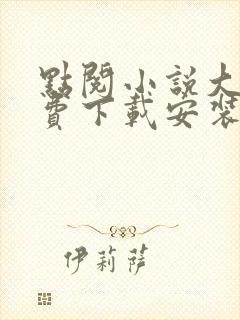 點閱小說大
費下載安裝
伊莉薩